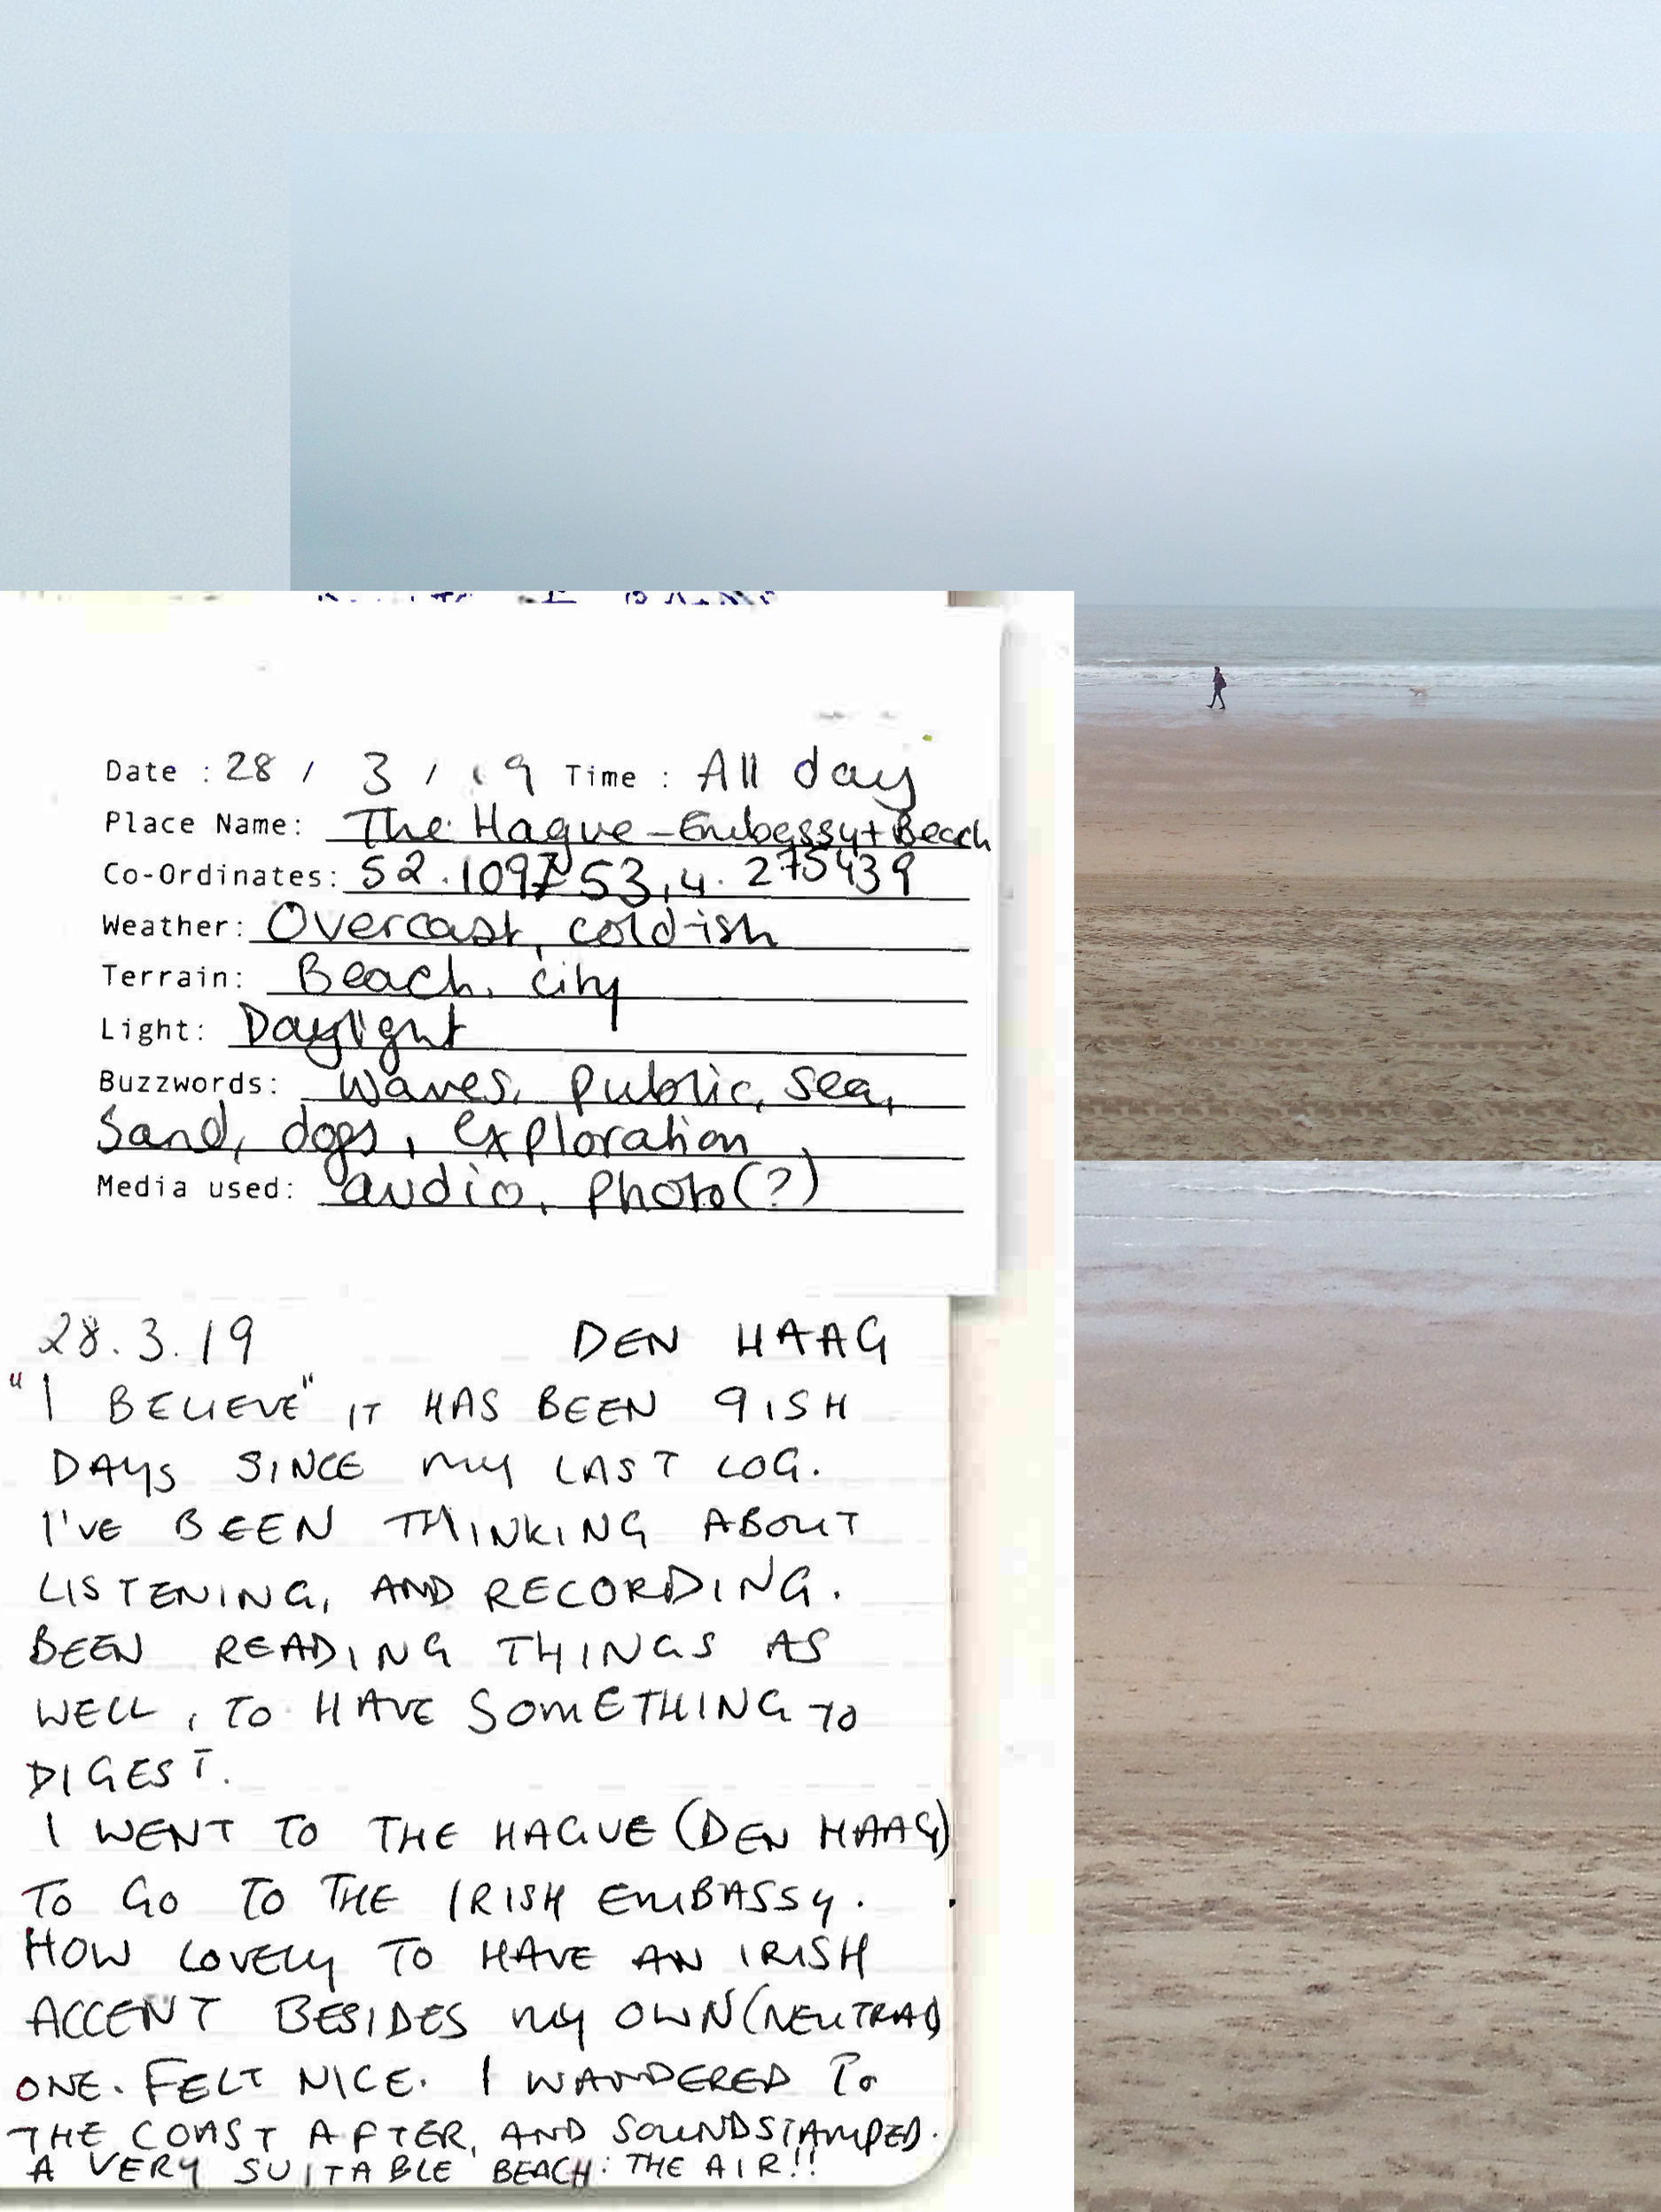 Date : 28 / 3 / 19 Time : All day
Place Name: The Hague - Embassy + Beach
Co-Ordinates: 52.109753, 4.275439
Weather: Overcast, coldish
Terrain: Beach, city
Light: Daylight
Buzzwords: Waves, public, sea,
Sand, dogs, exploration
Media used: audio, photo(?)
28.3.19 DEN HAAG
"I BELIEVE" IT HAS BEEN 9ISH
DAYS SINCE MY LAST LOG.
I'VE BEEN THINKING ABOUT
LISTENING, AND RECORDING.
BEEN READING THINGS AS
WELL, TO HAVE SOMETHING TO
DIGEST.
I WENT TO THE HAGUE (DEN HAAG)
TO GO TO THE IRISH EMBASSY.
HOW LOVELY TO HAVE AN IRISH
ACCENT BESIDES MY OWN (NEUTRAL)
ONE. FELT NICE. I WANDERED TO
THE COAST AFTER, AND SOUNDSTAMPED.
A VERY SUITABLE BEACH: THE AIR!!